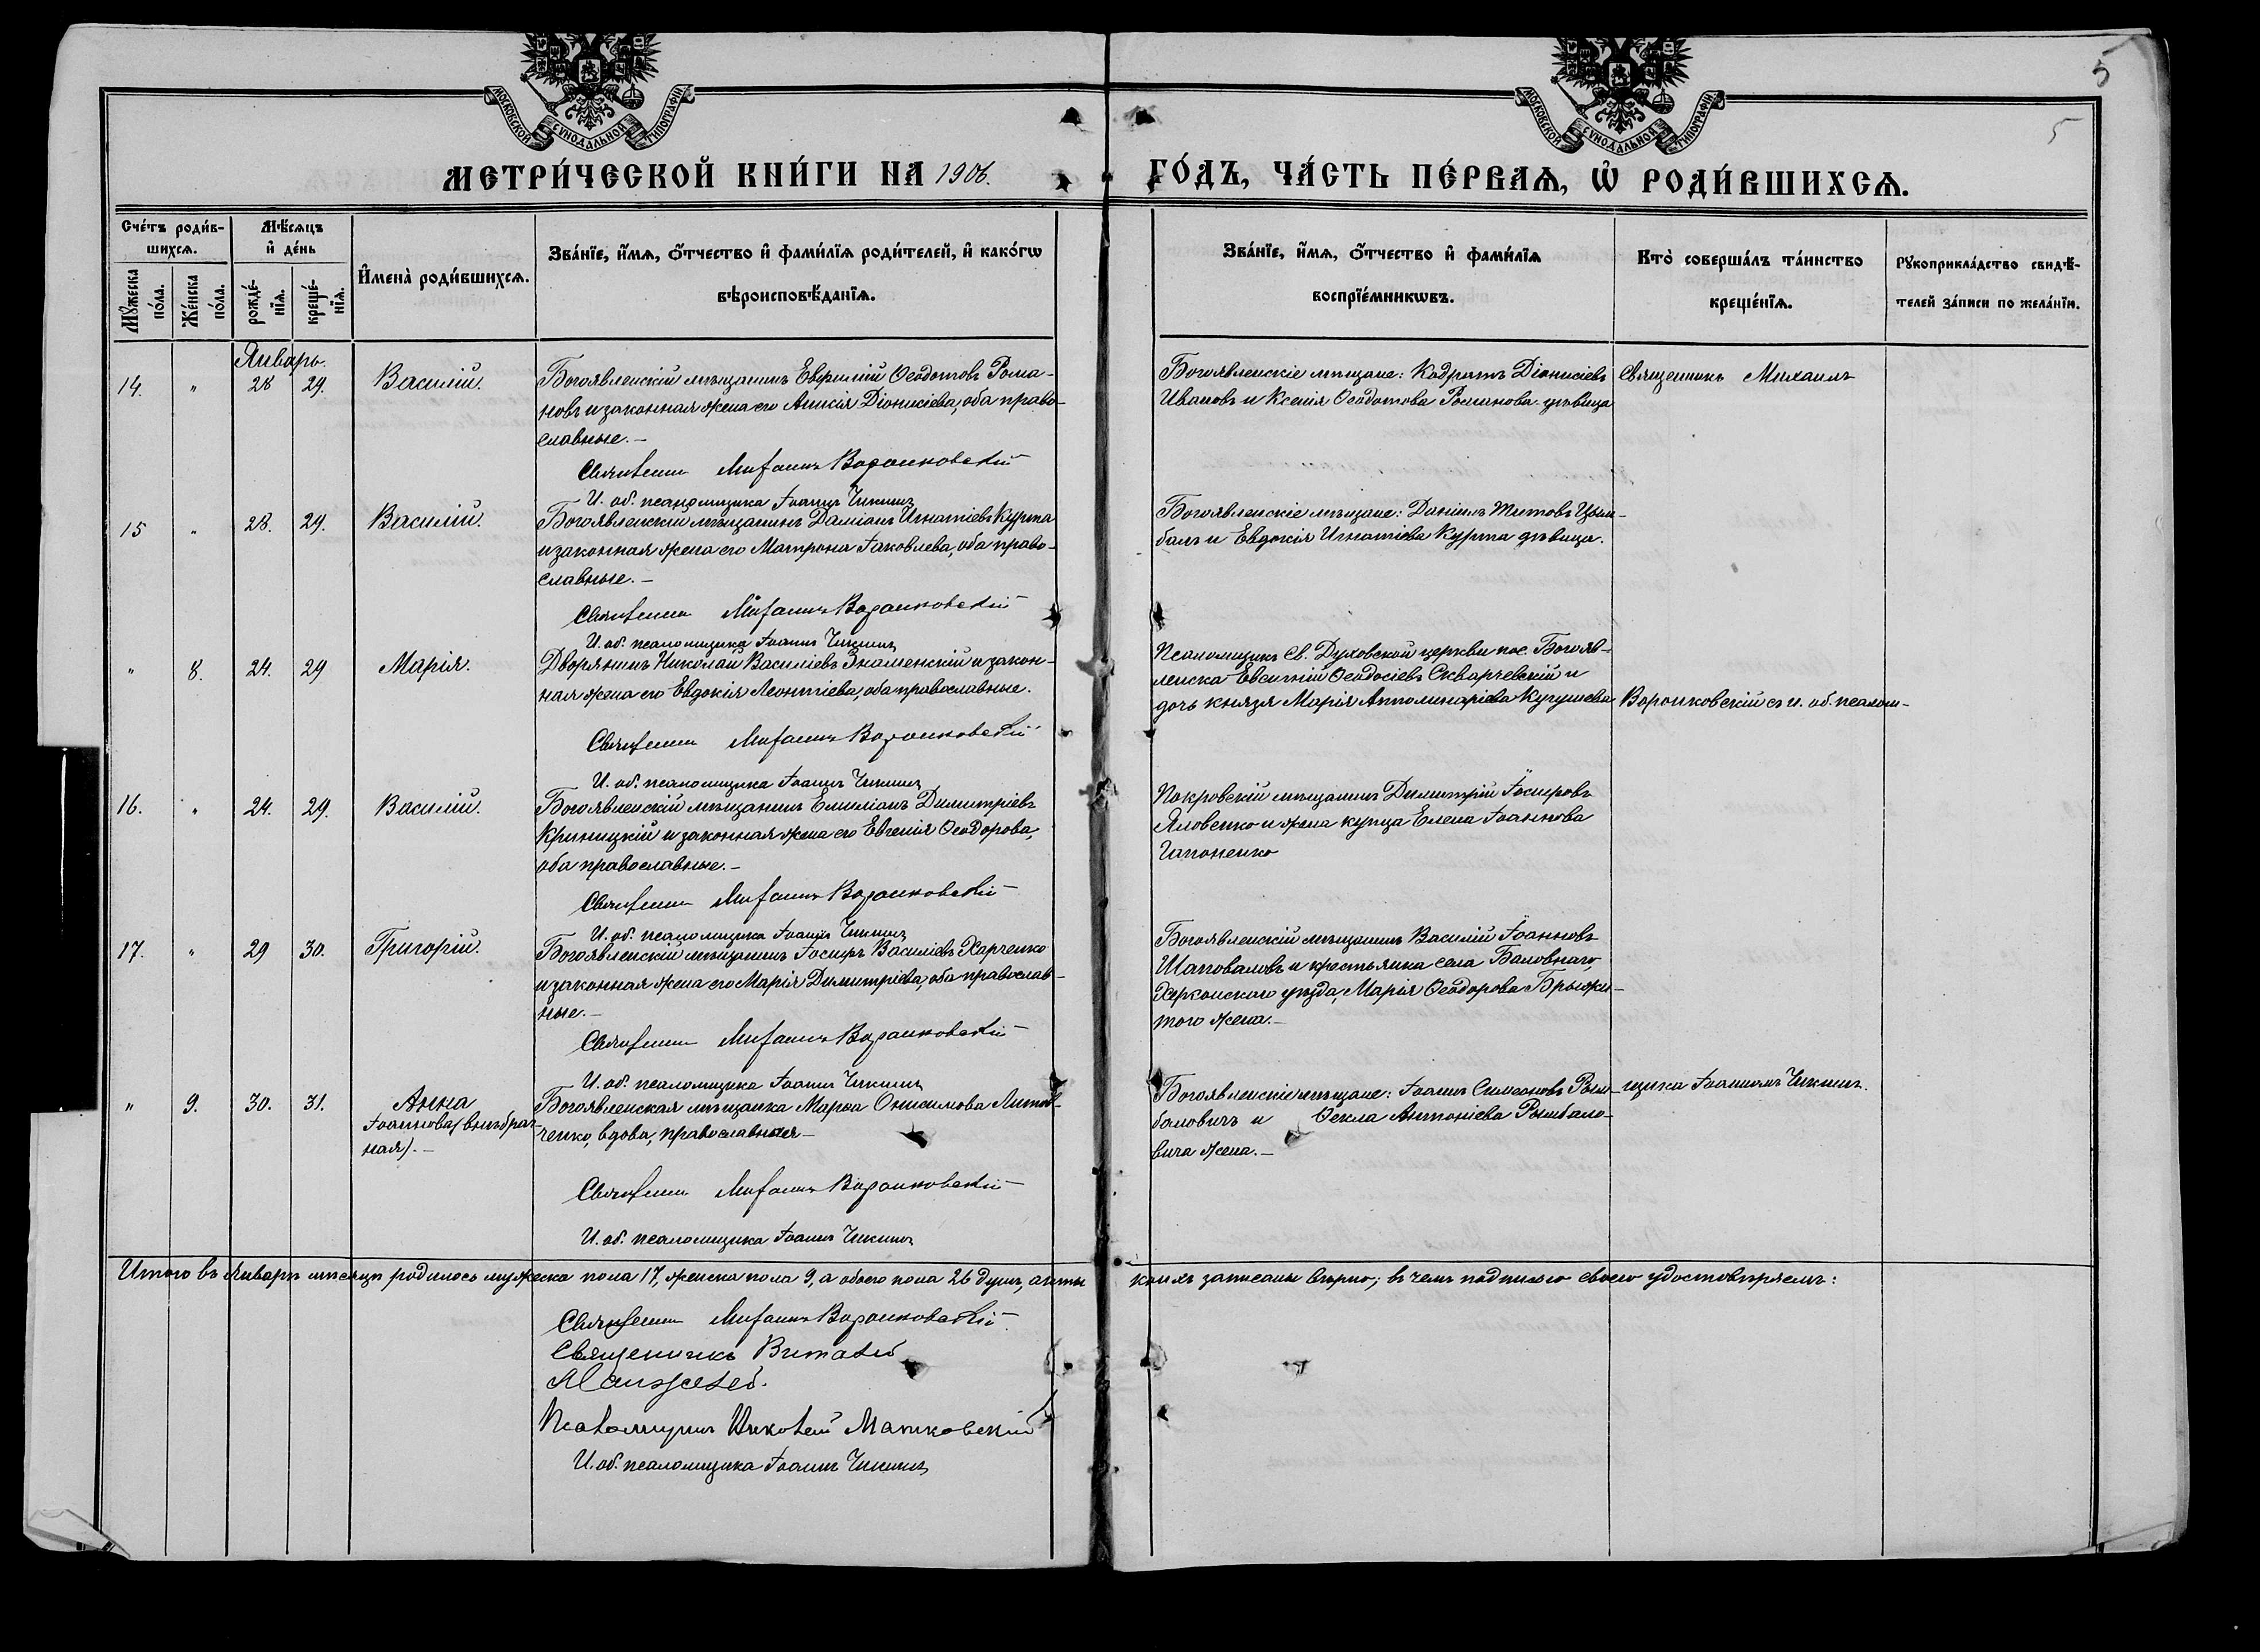 5
5
МОСКОВСКОЙ СѴНОДАЛЬНОЙ ТИПОГРАФІИ
МОСКОВСКОЙ СѴНОДАЛЬНОЙ ТИПОГРАФІИ
МЕТРИ́ЧЕСКОЙ КНИ́ГИ НА 1906. ГО́ДЪ, ЧА́СТЬ ПЕ́РВАѦ, Ѡ РОДИ́ВШИХСѦ.
Сче́тъ роди́в-
шихсѧ.
Мꙋ́жеска по́ла.
Же́нска по́ла.
Мѣ́сѧцъ
и҆ де́нь
рожде́-
нїѧ.
креще́-
нїѧ.
И҆мена̀ роди́вшихсѧ.
Зва́нїе, и҆́мѧ, ѻ҆́тчество и҆ фами́лїѧ роди́телей, и҆ како́гѡ
вѣроисповѣ́данїѧ.
Зва́нїе, и҆́мѧ, ѻ҆́тчество и҆ фами́лїѧ
воспрїе́мникѡвъ.
Кто̀ соверша́лъ та́инство
креще́нїѧ.
Рꙋкоприкла́дство свидѣ́-
телей за́писи по жела́нїю.
Январь.
14. " 28 29. Василій.
Богоявленскій мѣщанинъ Евфимій Ѳеодотовъ Рома-
новъ и законная жена его Анисія Діонисіева, оба право-
славные.-
Священникъ Михаилъ Воронковскій
И. об. псаломщика Іоаннъ Чикинъ
Богоявленскіе мѣщане: Кодратъ Діонисіевъ
Ивановъ и Ксенія Ѳеодотова Романова дѣвица
Священникъ Михаилъ
15 " 28. 29. Василій.
Богоявленскій мѣщанинъ Даміанъ Игнатіевъ Курта
и законная жена его Матрона Іаковлева, оба право-
славные.-
Священникъ Михаилъ Воронковскій
И. об. псаломщика Іоаннъ Чикинъ
Богоявленскіе мѣщане: Даніилъ Титовъ Цым-
балъ и Евдокія Игнатіева Курта дѣвица.
" 8. 24. 29 Марія.
Дворянинъ Николай Василіевъ Знаменскій и закон-
ная жена его Евдокія Леонтіева, оба православные.
Священникъ Михаилъ Воронковскій
И. об. псаломщика Іоаннъ Чикинъ
Псаломщикъ Св. Духовской церкви пос. Богояв-
ленска Евсигній Ѳеодосіевъ Скварчевскій и
дочь князя Марія Апполинаріева Кугушева
Воронковскій съ и. об. псалом-
16. " 24. 29. Василій.
Богоявленскій мѣщанинъ Емиліанъ Димитріевъ
Криницкій и законная жена его Евгенія Ѳеодорова,
оба православные.-
Священникъ Михаилъ Воронковскій
И. об. псаломщика Іоаннъ Чикинъ
Покровскій мѣщанинъ Димитрій Іосифовъ
Яловенко и жена купца Елена Іоаннова
Гапоненко
17. " 29 30. Григорій.
Богоявленскій мѣщанинъ Іосифъ Василіевъ Харченко
и законная жена его Марія Димитріева, оба православ-
ные.-
Священникъ Михаилъ Воронковскій
И. об. псаломщика Іоаннъ Чикинъ
Богоявленскій мѣщанинъ Василій Іоанновъ
Шаповаловъ и крестьянка села Баловнаго,
Херсонскаго уѣзда, Марія Ѳеодорова Брыжи-
того жена.-
" 9. 30. 31. Анна
Іоаннова (внѣбрач-
ная).-
Богоявленская мѣщанка Марѳа Онисимова Литов-
ченко, вдова, православная-
Священникъ Михаилъ Воронковскій
И. об. псаломщика Іоаннъ Чикинъ
Богоявленскіе мѣщане: Іоаннъ Симеоновъ Рым-
баловичъ и Ѳекла Антоніева Рымбало-
вича жена.-
щика Іоанномъ Чикинъ.
Итого въ Январѣ мѣсяцѣ родилось мужеска пола 17, женска пола 9, а обоего пола 26 душъ, акты коихъ записаны вѣрно; въ чемъ подписью своею удостовѣряемъ:
Священникъ Михаилъ Воронковскій
Священникъ Виталій
Псаломщикъ Николай Матковскій
И. об. псаломщика Іоаннъ Чикинъ